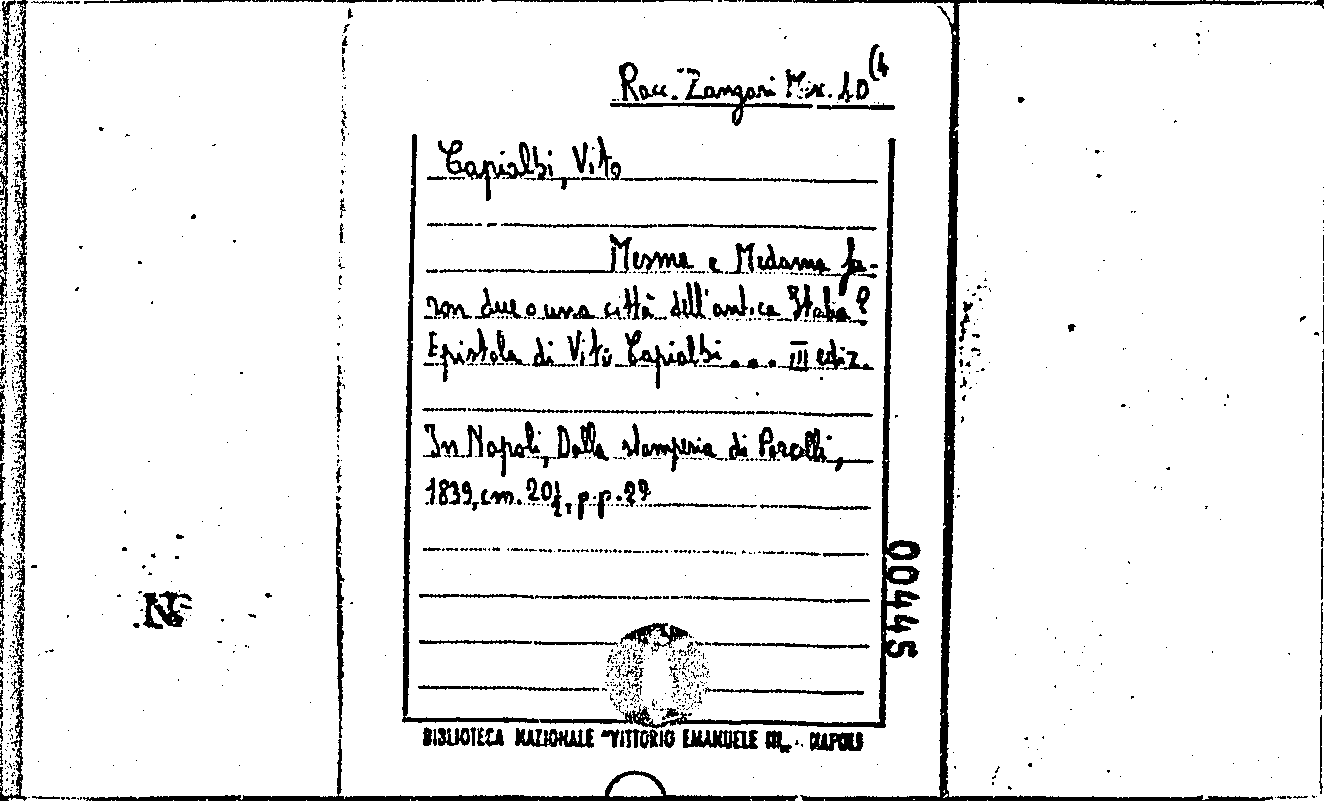 Racc. Zangari Misc. 10 (4
Capialbi, Vito
Mesma e Medama fu-
ron due o una città dell'antica Italia?
Epistola di Vito Capialbi... III ediz.
In Napoli, Dalla stamperia di Porcelli,
1839, cm. 20½, p.p. 29
00445
BIBLIOTECA NAZIONALE "VITTORIO EMANUELE III" - NAPOLI